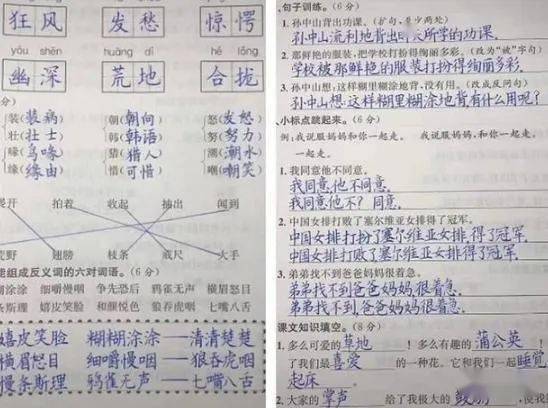 狂风 发愁 惊愕
yōu shēn huāng dì hé lǒng
幽深 荒地 合拢
分)
装(装病) 朝(朝向) 怒(发怒)
壮(壮士) 韩(韩语) 努(努力)
喙(鸟喙) 猎(猎人) 潮(潮水)
缘(缘由) 惜(可惜) 嘲(嘲笑)
展开 拍着 收起 抽出 闻到
荒野 翅膀 枝条 戒尺 大手
能组成反义词的六对词语。(6分)
糊涂涂 细嚼慢咽 争先恐后 鸦雀无声 横眉怒目
条斯理 嬉皮笑脸 和颜悦色 狼吞虎咽 七嘴八舌
嬉皮笑脸 糊糊涂涂——清清楚楚
横眉怒目 细嚼慢咽——狼吞虎咽
慢条斯理 鸦雀无声——七嘴八舌
句子训练。(6分)
1.孙中山背出功课。(扩句,至少两处)
孙中山流利地背出昨天所学的功课.
2.那鲜艳的服装,把学校打扮得绚丽多彩。(改为“被”字句)
学校被那鲜艳的服装打扮得绚丽多彩.
3.孙中山想,这样糊里糊涂地背,没有用。(改成反问句)
孙中山想,这样糊里糊涂地背有什么用呢?
小标点跳起来。(6分)
例:我说服妈妈和你一起走。 我说服妈妈,和你一起走。
1.我同意他不同意。
我同意,他不同意.
我同意他?不.
2.中国女排打败了塞尔维亚女排得了冠军。
中国女排打扮了塞尔维亚女排,得了冠军.
中国女排打败了,塞尔维亚女排得了冠军.
3.弟弟找不到爸爸妈妈很着急。
弟弟找不到,爸爸妈妈很着急.
弟弟找不到爸爸,妈妈很着急.
课文知识填空。(8分)
1.多么可爱的草地!多么有趣的蒲公英
了我们最喜爱的一种花。它和我们一起睡觉
起床
2.大家的掌声给了我极大的鼓励,使我